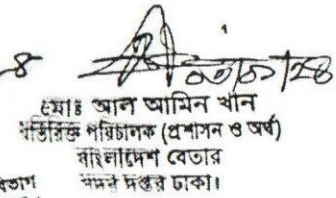 ৪
০৩/০১/২৪
মোঃ আল আমিন খান
অতিরিক্ত পরিচালক (প্রশাসন ও অর্থ)
বাংলাদেশ বেতার
সদর দপ্তর ঢাকা।